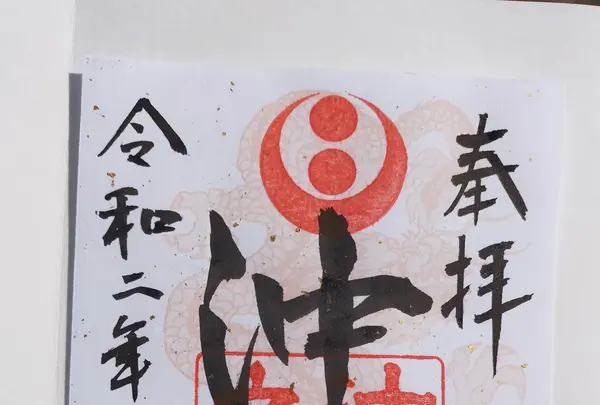 奉拝
沖
令和二年